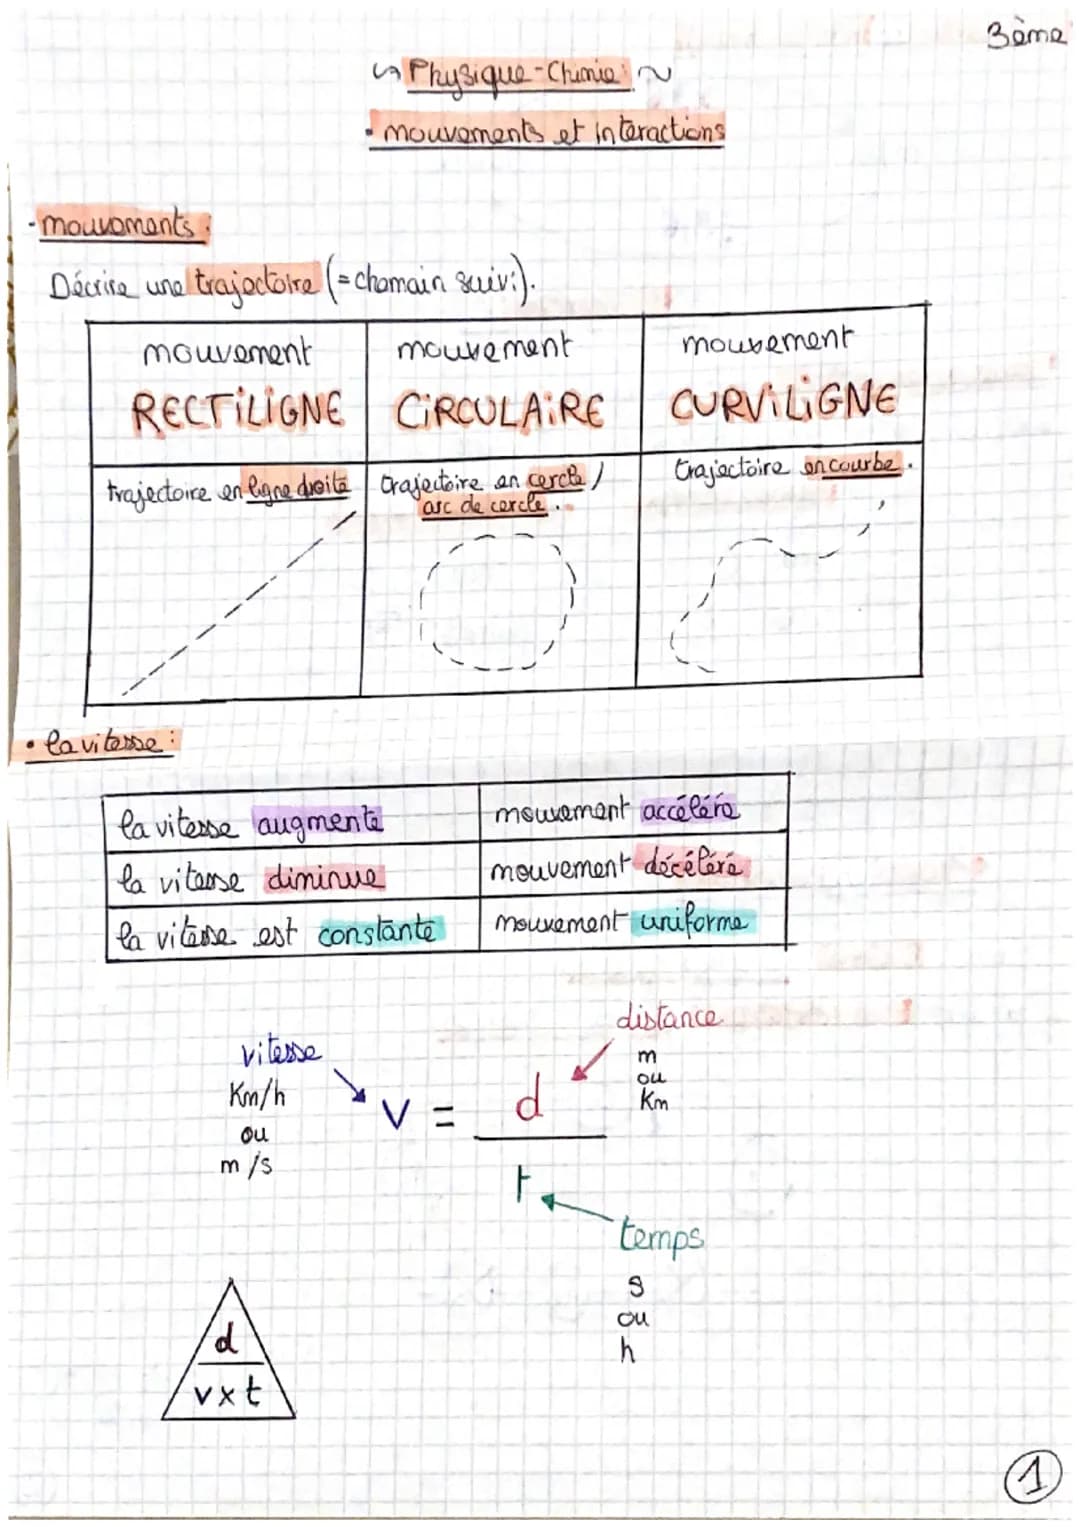 3ème
Physique-Chimie:
• mouvements et interactions
• mouvements :
Décrire une trajectoire (= chemain suivi).
mouvement RECTILIGNE
mouvement CIRCULAIRE
mouvement CURVILIGNE
trajectoire en ligne droite
trajectoire en cercle /
arc de cercle.
trajectoire en courbe.
• la vitesse :
la vitesse augmente mouvement accéléré
la vitesse diminue mouvement décéléré
la vitesse est constante mouvement uniforme
distance
m
ou
Km
vitesse
Km/h
ou
m/s
v = d
t
temps
s
ou
h
d
v x t
1